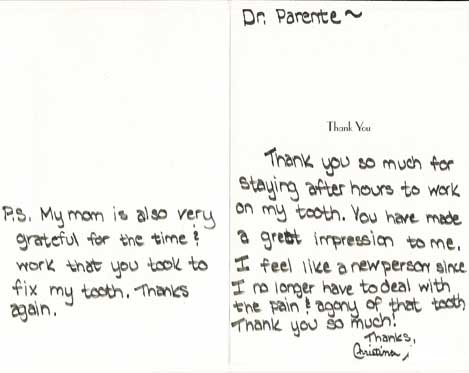 P.S. My mom is also very
grateful for the time &
work that you took to
fix my tooth. Thanks
again.
Dr. Parente ~
Thank You
Thank you so much for
staying after hours to work
on my tooth. You have made
a great impression to me.
I feel like a new person since
I no longer have to deal with
the pain & agony of that tooth
Thank you so much!
Thanks,
Christina